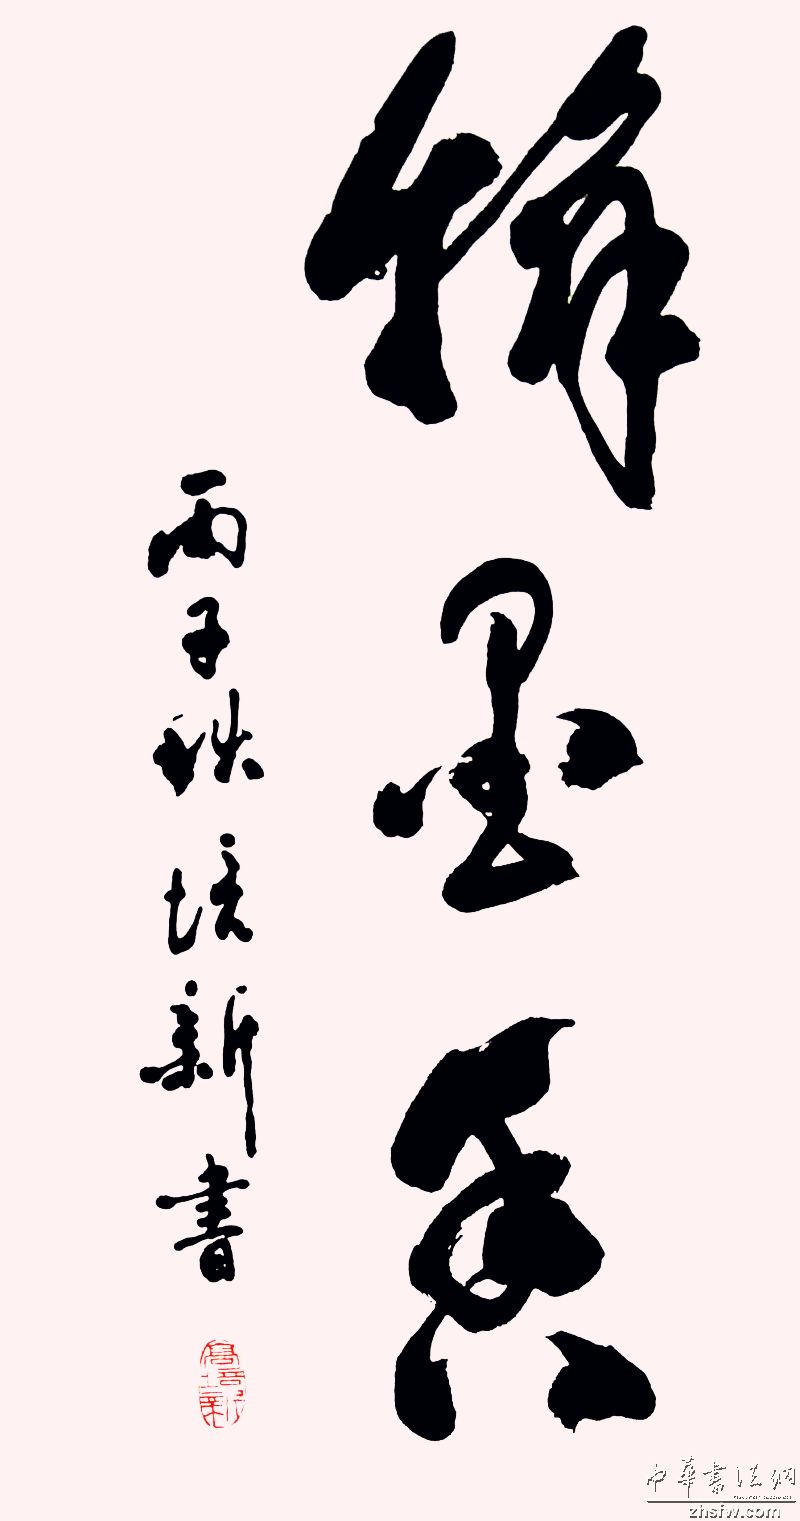 翰墨香
丙子秋培新書
高培新
中華書法網
zhsfw.com